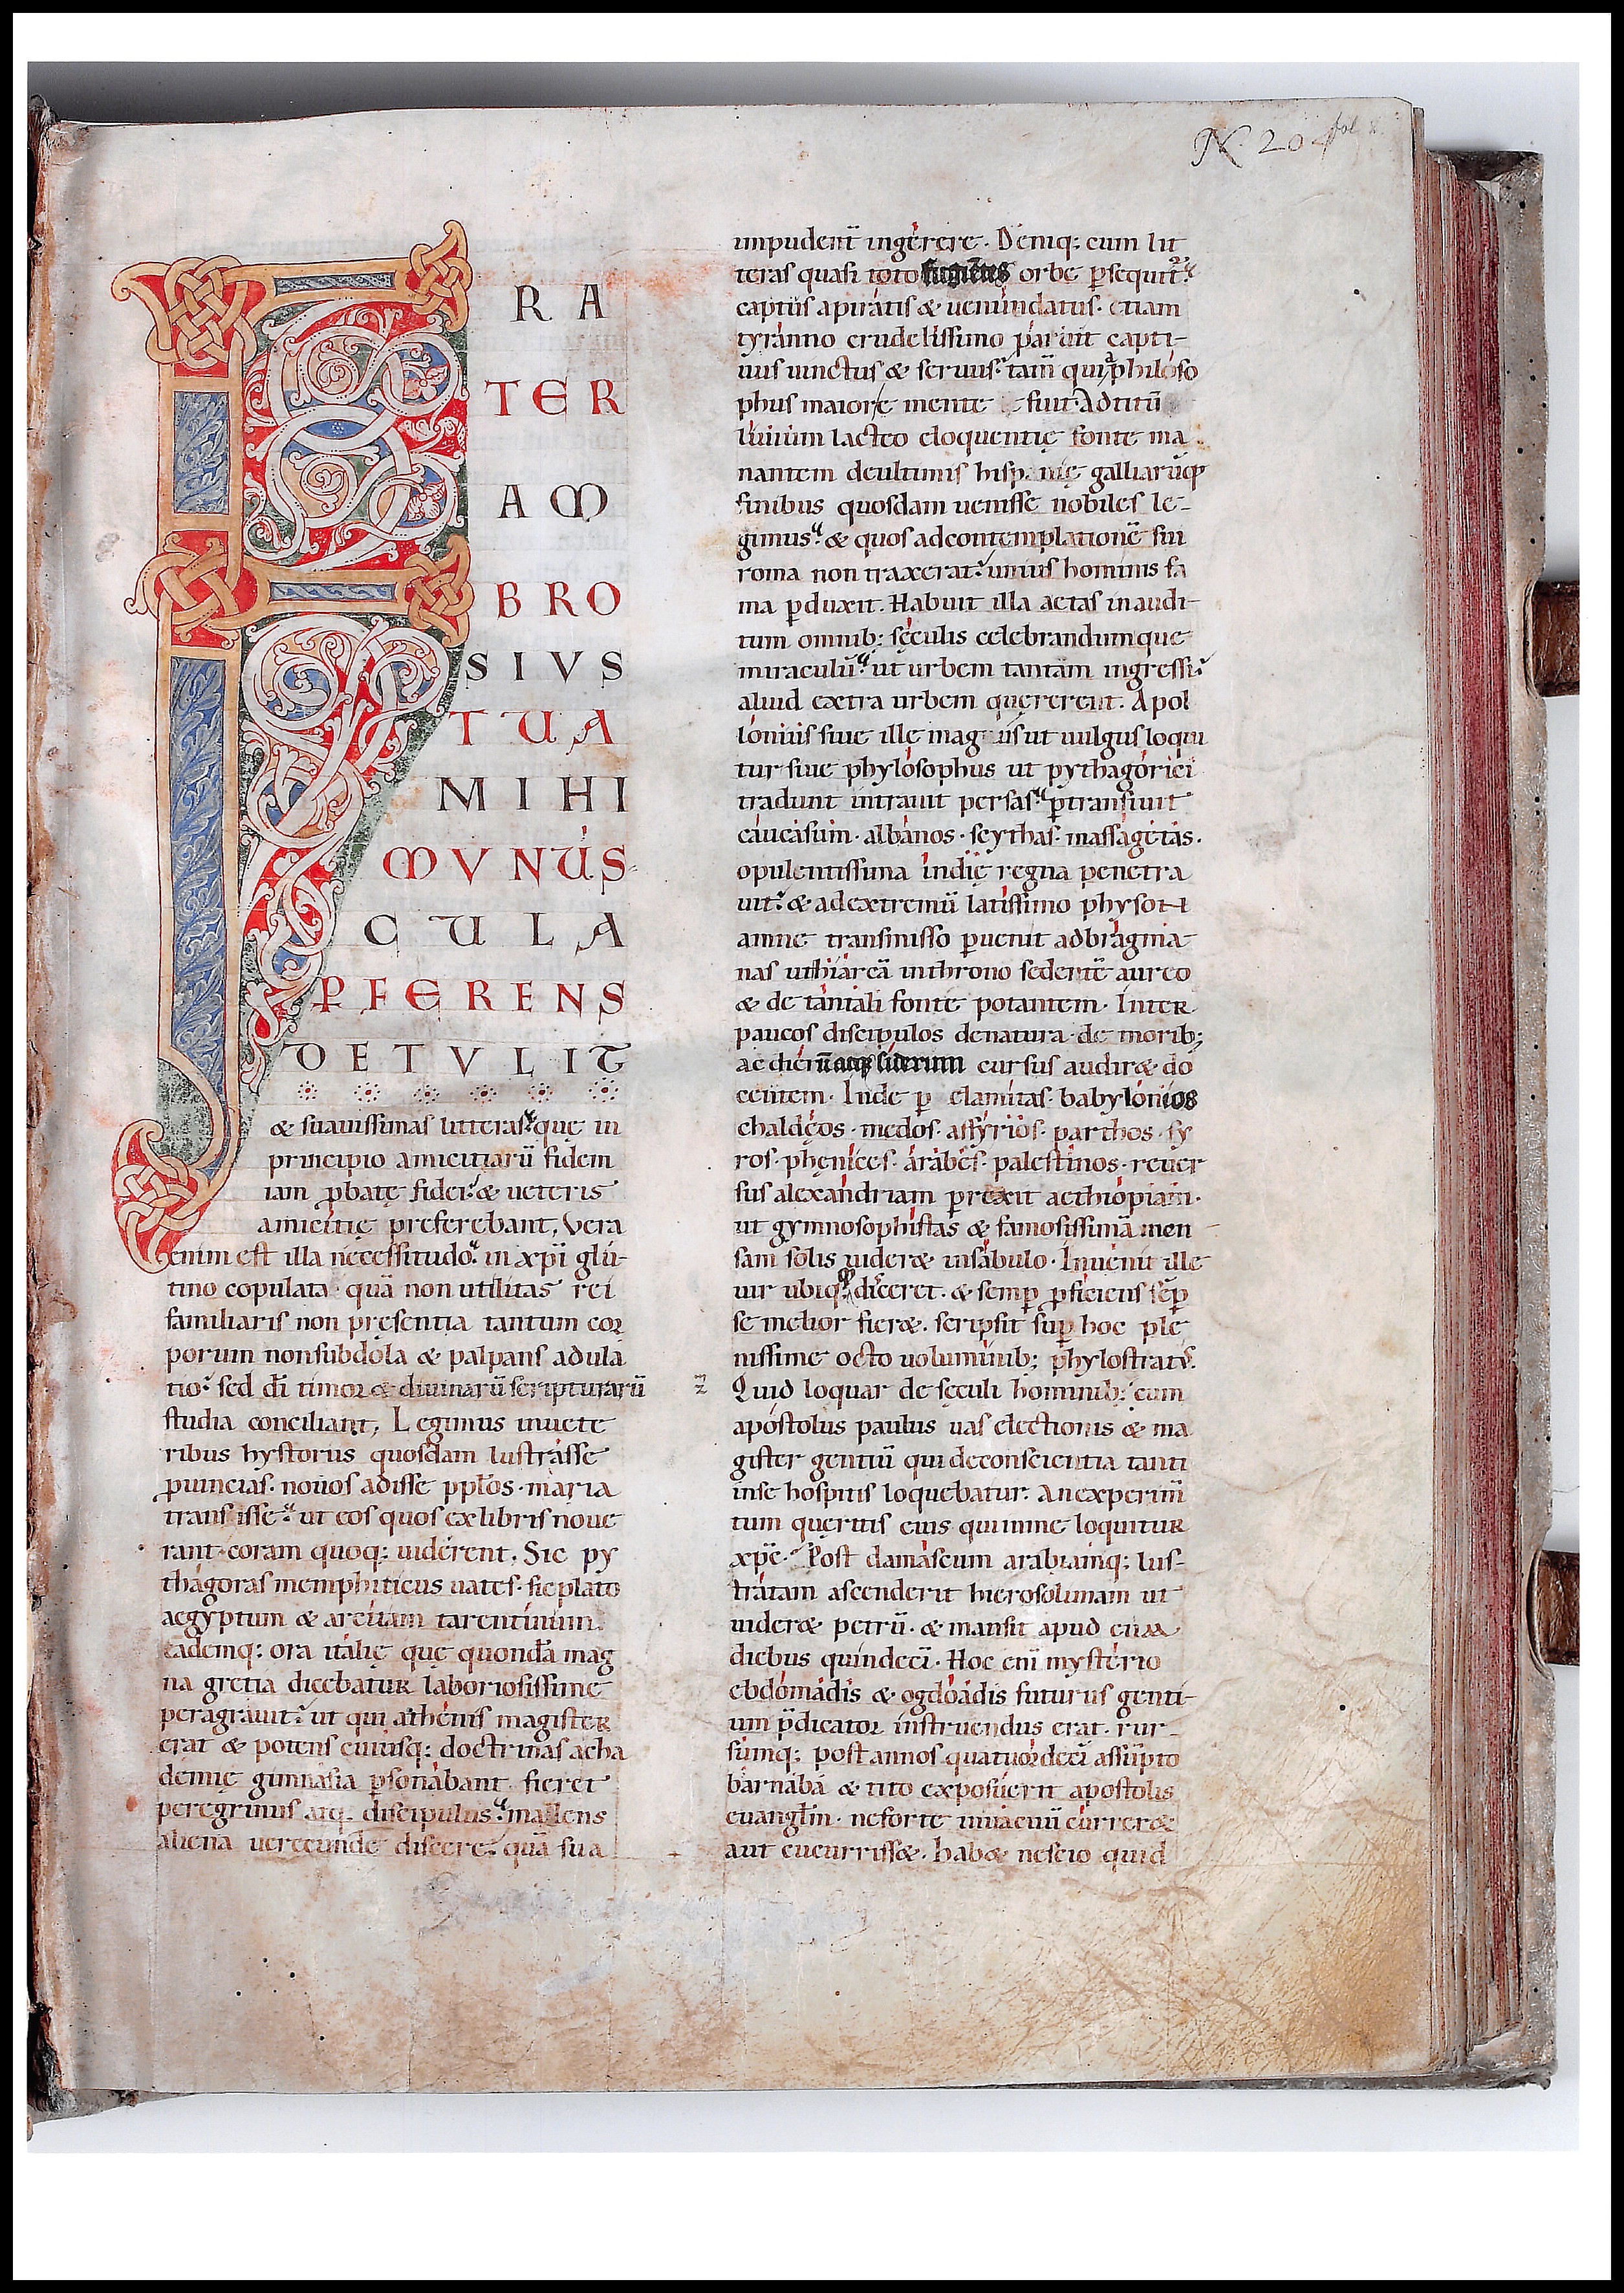 N. 204 fol
F
RA
TER
AM
BRO
SIVS
TUA
MIHI
MVNUS
CULA
PFERENS
DETULIT
& suauissimas litteras. quę in
principio amicitiarū fidem
iam pbatę fidei. & ueteris
amicitię preferebant. Vera
enim est illa necessitudo. in xp̄i glu-
tino copulata quā non utilitas rei
familiaris non pręsentia tantum cor
porum non subdola & palpans adula
tio. sed dī timor & diuinarū scripturarū
studia conciliant, Legimus in uete
ribus hystoriis quosdam lustrasse
puincias. nouos adisse pplos. maria
transisse. ut eos quos ex libris noue
rant coram quoq: uiderent. Sic py
thagoras memphiticus uates. sic plato
aegyptum & arcitam tarentinum.
eademq: ora italię quę quondā mag
na gretia dicebatur laboriosissime
peragrauit. ut qui athenis magister
erat & potens cuiusq: doctrinas acha
demię gimnasia psonabant fieret
peregrinus atq. discipulus. mallens
aliena uerecunde discere. quā sua
impudent̄ ingerere. Deniq: cum lit
teras quasi toto fugientes orbe psequit̄.
captus a piratis & uenundatus. etiam
tyranno crudelissimo paruit capti-
uus uinctus & seruus. tam̄ quia philoso
phus maiore mente fuit Ad titū
liuium lacteo eloquentię fonte ma
nantem de ultimis hispanię galliarūq
finibus quosdam uenisse nobiles le-
gimus. & quos ad contemplationē sui
roma non traxerat. unius hominis fa
ma pduxit. Habuit illa aetas inaudi-
tum omnib; sęculis celebrandumque
miraculū. ut urbem tantam ingressi
aliud extra urbem quęrerent. Apol
lonius siue ille magus ut uulgus loqui
tur siue phylosophus ut pythagorici
tradunt intrauit persas. ptransiuit
caucasum. albanos. scythas. massagetas.
opulentissima indię regna penetra
uit. & ad extremū latissimo physon
amne transmisso puenit ad bragma
nas ut hiarcā in throno sedentē aureo
& de tantali fonte potantem. Inter
paucos discipulos de natura. de morib;
ac dierū atq siderum cursus audiræ do
centem. Inde p elamitas. babylonios
chaldęos. medos. assyrios. parthos. sy
ros. phęnices. arabes. palestinos. reuer
sus alexandriam prexit aethiopiam.
ut gymnosophistas & famosissimā men
sam solis uideræ in sabulo. Inuenit ille
uir ubiq: qd disceret. & semp pficiens sēp
se melior fieræ. scripsit sup hoc ple
nissime octo uoluminib; phylostratus.
Quid loquar de sęculi hominib; cum
apostolus paulus uas electionis & ma
gister gentiū qui de conscientia tanti
in se hospitis loquebatur. An experim̄
tum quęritis eius qui in me loquitur
xp̄c. Post damascum arabiamq: lus-
tratam ascenderit hierosolimam ut
uideræ petrū. & mansit apud eum
diebus quindeci. Hoc enī mysterio
ebdomadis & ogdoadis futurus genti-
um p̄dicator instruendus erat. rur-
sumq: post annos quatuordeci assūpto
barnaba & tito exposuerit apostolis
euangl̄m. ne forte in uacuū curreræ
aut cucurrissæ. habæ nescio quid